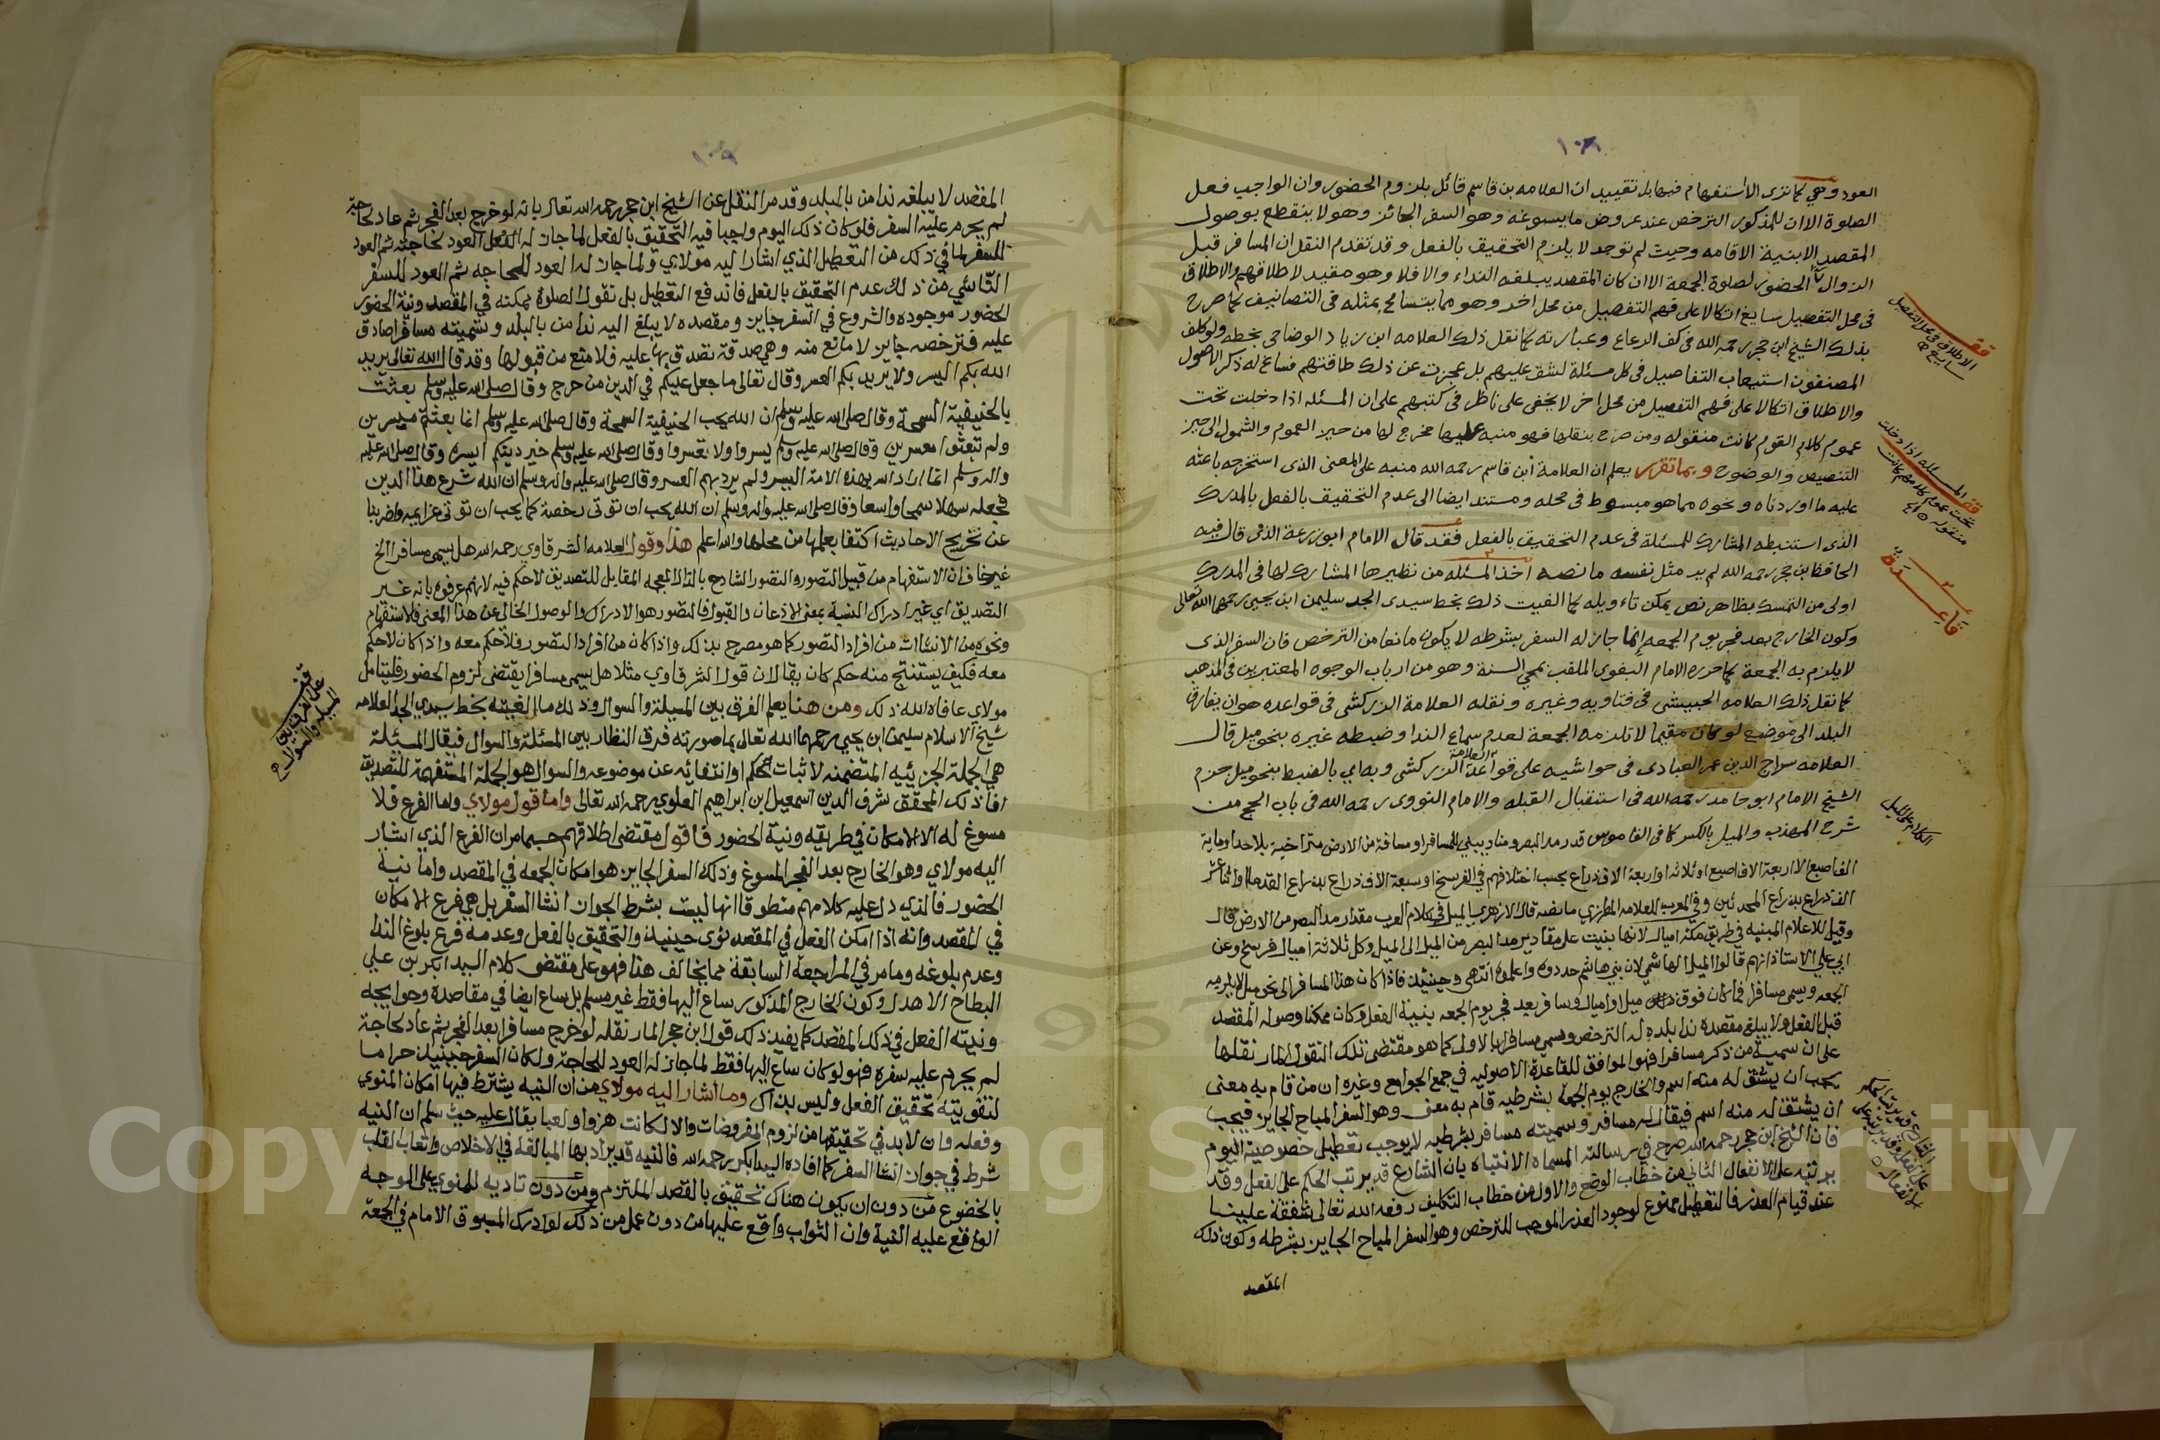 ١٠٨
العود وهي كما ترى الاستفهام فيها بل تقييد ان العلامه بن قاسم قائل بلزوم الحضور وان الواجب فعل
الصلوة الا ان للمذكور الترخص عند عروض ما يسوغه وهو السفر الجائز وهو لا ينقطع بوصول
المقصد الابنية الاقامه وحيث لم توجد لا يلزم التحقيق بالفعل وقد تقدم النقل ان المسافر قبل
الزوال الحضور لصلوة الجمعة الا ان كان المقصد يبلغه النداء والا فلا وهو مقيد لاطلاقهم والاطلاق
في محل التفصيل سايغ اتكالا على فهم التفصيل من محل اخر وهو مما يتسامح بمثله فى التصانيف كما صرح
بذلك الشيخ ابن حجر رحمه الله في كف الرعاع وعبارته كما نقل ذلك العلامه ابن زياد الوضاحي بخطه ولو كلف
المصنفون استيعاب التفاصيل فى كل مسئلة لشق عليهم بل عجزت عن ذلك طاقتهم فساغ له ذكر الاصول
والاطلاق اتكالا على فهم التفصيل من محل اخر لا يخفى على ناظر فى كتبهم على ان المسئله اذا دخلت تحت
عموم كلام القوم كانت منقوله ومن صرح بنقلها فهو منبه عليها مخرج لها من حيز العموم والشمول الى حيز
التنصيص والوضوح وبما تقرر يعلم ان العلامة ابن قاسم رحمه الله منبه على المعنى الذى استخرجه باعثه
عليه ما اوردناه ونحوه مما هو مبسوط فى محله ومستندا ايضا الى عدم التحقيق بالفعل بالمدرك
الذى استنبطه المشارك للمسئلة فى عدم التحقيق بالفعل فقد قال الامام ابو زرعة الذى قال فيه
الحافظ ابن حجر رحمه الله لم ير مثل نفسه ما نصه اخذ المسئله من نظيرها المشارك لها فى المدرك
اولى من التمسك بظاهر نص يمكن تاءويله كما الفيت ذلك بخط سيدى الجد سليمن ابن يحيى رحمهما الله تعالى
وكون الخارج بعد فجر يوم الجمعه انما جاز له السفر بشرطه لا يكون مانعا من الترخص فان السفر الذى
لا يلزم به الجمعة كما حرره الامام البغوى الملقب بمحي السنة وهو من ارباب الوجوه المعتبرين فى المذهب
كما نقل ذلك العلامه الحبيشى فى فتاويه وغيره ونقله العلامة الزركشى فى قواعده هو ان يفارق
البلد الى موضع لو كان مقيما لا تلزمه الجمعة لعدم سماع الندا وضبطه غيره بنحو ميل قال
العلامه سراج الدين عمر العبادى فى حواشيه على قواعد العلامة الزركشى وبه اي بالضبط بنحو ميل جزم
الشيخ الامام ابو حامد رحمه الله فى استقبال القبله والامام النووى رحمه الله فى باب الحج من
شرح المهذب والميل بالكسر كما فى القاموس قدر مد البصر ومنار يبنى للمسافر او مسافة من الارض متراخية بلا حد او ماية
الف اصبع الا اربعة الاف اصبع او ثلاثه او اربعة الاف ذراع بحسب اختلافهم فى الفرسخ او تسعة الاف ذراع بذراع القدما او اثنا عشر
الف ذراع بذراع المحدثين وفي المعرب للعلامه المطرزي ما نصه قال الازهري الميل في كلام العرب مقدار مد البصر من الارض قال
وقيل للاعلام المبنيه في طريق مكة اميال لانها بنيت على مقادير مد البصر من الميل الى الميل وكل ثلاثة اميال فرسخ وعن
ابي علي الاستاذ انهم قالوا الميل الهاشمي لان بني هاشم حددوه واعلموه انتهى وحينئذ فاذا كان هذا المسافر الى نحو ميل لا يلزمه
الجمعه ويسمى مسافرا فما كان فوق ذلك ميل او اميال وسافر بعد فجر يوم الجمعه بنية الفعل وكان ممكنا وصوله المقصد
قبل الفعل ولا يبلغ مقصده ندا بلده له الترخص ويسمى مسافرا بالاولى كما هو مقتضى تلك النقول المار نقلها
على ان تسمية من ذكر مسافرا فهو الموافق للقاعدة الاصوليه في جمع الجوامع وغيره ان من قام به معنى
يجب ان يشتق له منه اسم والخارج يوم الجمعة بشرطيه قام به معنى وهو السفر المباح الجايز فيجب
ان يشتق له منه اسم فيقال له مسافر وتسميته مسافر بشرطيه لا يوجب تعطيل خصوصية اليوم
فان الشيخ ابن حجر رحمه الله صرح في رسالته المسماه الانتباه بان الشارع قد يرتب الحكم على الفعل وقد
يرتبه على الانفعال الثاني من خطاب الوضع والاول من خطاب التكليف رفعه الله تعالى شفقة علينا
عند قيام العذر فالتعطيل ممنوع لوجود العذر الموجب للترخص وهو السفر المباح الجايز بشرطه وكون ذلك
المقصد
قف
الاطلاق في محل التفصيل
سايغ
قف المسئله اذا دخلت
تحت عموم كلامهم كانت
منقوله
قاعدة
الكلام على الميل
الشارع قد يرتب الحكم
على الفعل وقد يرتبه على
الانفعال
١٠٩
المقصد لا يبلغه ندا من بالبلد وقد مر النقل عن الشيخ ابن حجر رحمه الله تعالى بانه لو خرج بعد الفجر ثم عاد لحاجة
لم يحرم عليه السفر فلو كان ذلك اليوم واجبا فيه التحقيق بالفعل لما جاز له الفعل العود لحاجته ثم العود
للسفر لما في ذلك من التعطيل الذي اشار اليه مولاي ولما جاز له العود للحاجه ثم العود للسفر
الناشي من ذلك عدم التحقيق بالفعل فاندفع التعطيل بل نقول الصلوة ممكنه في المقصد ونية الحضور
الحضور موجوده والشروع في السفر جايز ومقصده لا يبلغ اليه ندا من بالبلد وتسميته مسافرا صادق
عليه فترخصه جايز لا مانع منه وهي صدقة تصدق بها عليه فلا منع من قبولها وقد قال الله تعالى يريد
الله بكم اليسر ولا يريد بكم العسر وقال تعالى ما جعل عليكم في الدين من حرج وقال صلى الله عليه وسلم بعثت
بالحنيفية السمحة وقال صلى الله عليه وسلم ان الله يحب الحنيفية السمحة وقال صلى الله عليه وسلم انما بعثتم ميسرين
ولم تبعثوا معسرين وقال صلى الله عليه وسلم يسروا ولا تعسروا وقال صلى الله عليه وسلم خير دينكم ايسره وقال صلى الله عليه
واله وسلم انما اراد الله بهذه الامة اليسر ولم يرد بهم العسر وقال صلى الله عليه واله وسلم ان الله شرع هذا الدين
فجعله سهلا سمحا واسعا وقال صلى الله عليه واله وسلم ان الله يحب ان توتى رخصه كما يحب ان توتى عزايمه واضربنا
عن تخريج الاحاديث اكتفا بعلمها من محلها والله اعلم هذا وقول العلامه الشرقاوي رحمه الله هل يسمى مسافر الخ
غير خاف ان الاستفهام من قبيل التصور والتصور الشادح بالذال المعجمه المقابل للتصديق لا حكم فيه لانهم عرفوه بانه غير
التصديق اي غير ادراك النسبة بمعنى الاذعان والقبول فالتصور هو الادراك والوصول الخالي عن هذا المعنى فالاستفهام
ونحوه من الانشاات من افراد التصور كما هو مصرح بذلك واذا كان من افراد التصور فلا حكم معه واذا كان لا حكم
معه فكيف يستنتج منه حكم كان يقال لان قول الشرقاوي مثلا هل يسمى مسافرا يقتضى لزوم الحضور فليتامل
مولاي عافاه الله ذلك ومن هنا يعلم الفرق بين المسيلة والسوال وذلك ما الفيته بخط سيدي الجد العلامه
شيخ الاسلام سليمان ابن يحيى رحمهما الله تعالى بما صورته فرق النظار بين المسئلة والسوال فيقال المسئيلة
هي الجملة الجزئيه المتضمنه لاثبات الحكم او انتفائه عن موضوعه والسوال هو الجملة المستفهمة للتصديق
افاد ذلك المحقق شرف الدين اسمعيل ابن ابراهيم العلوي رحمه الله تعالى واما قول مولاي واما الفرع فلا
مسوغ له الا الامكان في طريقه ونية الحضور فاقول مقتضى اطلاقهم حسبما مر ان الفرع الذي اشار
اليه مولاي وهو الخارج بعد الفجر المسوغ وذلك السفر الجايز هو امكان الجمعه في المقصد واما نية
الحضور فالذي دل عليه كلامهم منطوقا انها ليست بشرط الجواز انشا السفر بل هي فرع الامكان
في المقصد وانه اذا امكن الفعل في المقصد نوى حينيذ والتحقيق بالفعل وعدمه فرع بلوغ الندا
وعدم بلوغه وما مر في المراجعة السابقة مما يخالف هذا فهو على مقتضى كلام السيد ابكر بن علي
البطاح الاهدل وكون الخارج المذكور ساع اليها فقط غير مسلم بل ساع ايضا في مقاصده وحوايجه
ونيته الفعل في ذلك المقصد كما يفيد ذلك قول ابن حجر المار نقله لو خرج مسافرا بعد الفجر ثم عاد لحاجة
لم يحرم عليه سفره فهو لو كان ساع اليها فقط لما جاز له العود للحاجة ولكان السفر حينيذ حراما
لتفويته تحقيق الفعل وليس بذاك وما اشار اليه مولاي من ان النيه يشترط فيها امكان المنوي
وفعله وان لا بد في تحقيقها من لزوم المفروضات والا لكانت هزوا ولعبا يقال عليه حيث سلم ان النيه
شرط في جواز انشا السفر كما افاده السيد ابكر رحمه الله فالنيه قد يراد بها المبالغة في الاخلاص واتعاب القلب
بالخضوع من دون ان يكون هناك تحقيق بالقصد الملتزم ومن دون تاديه للمنوي على الوجه
الواقع عليه النية وان الثواب واقع عليها من دون عمل من ذلك لو ادرك المسبوق الامام في الجمعة
قف
على الفرق بين
المسيلة والسوال
Copyright © King Saud University